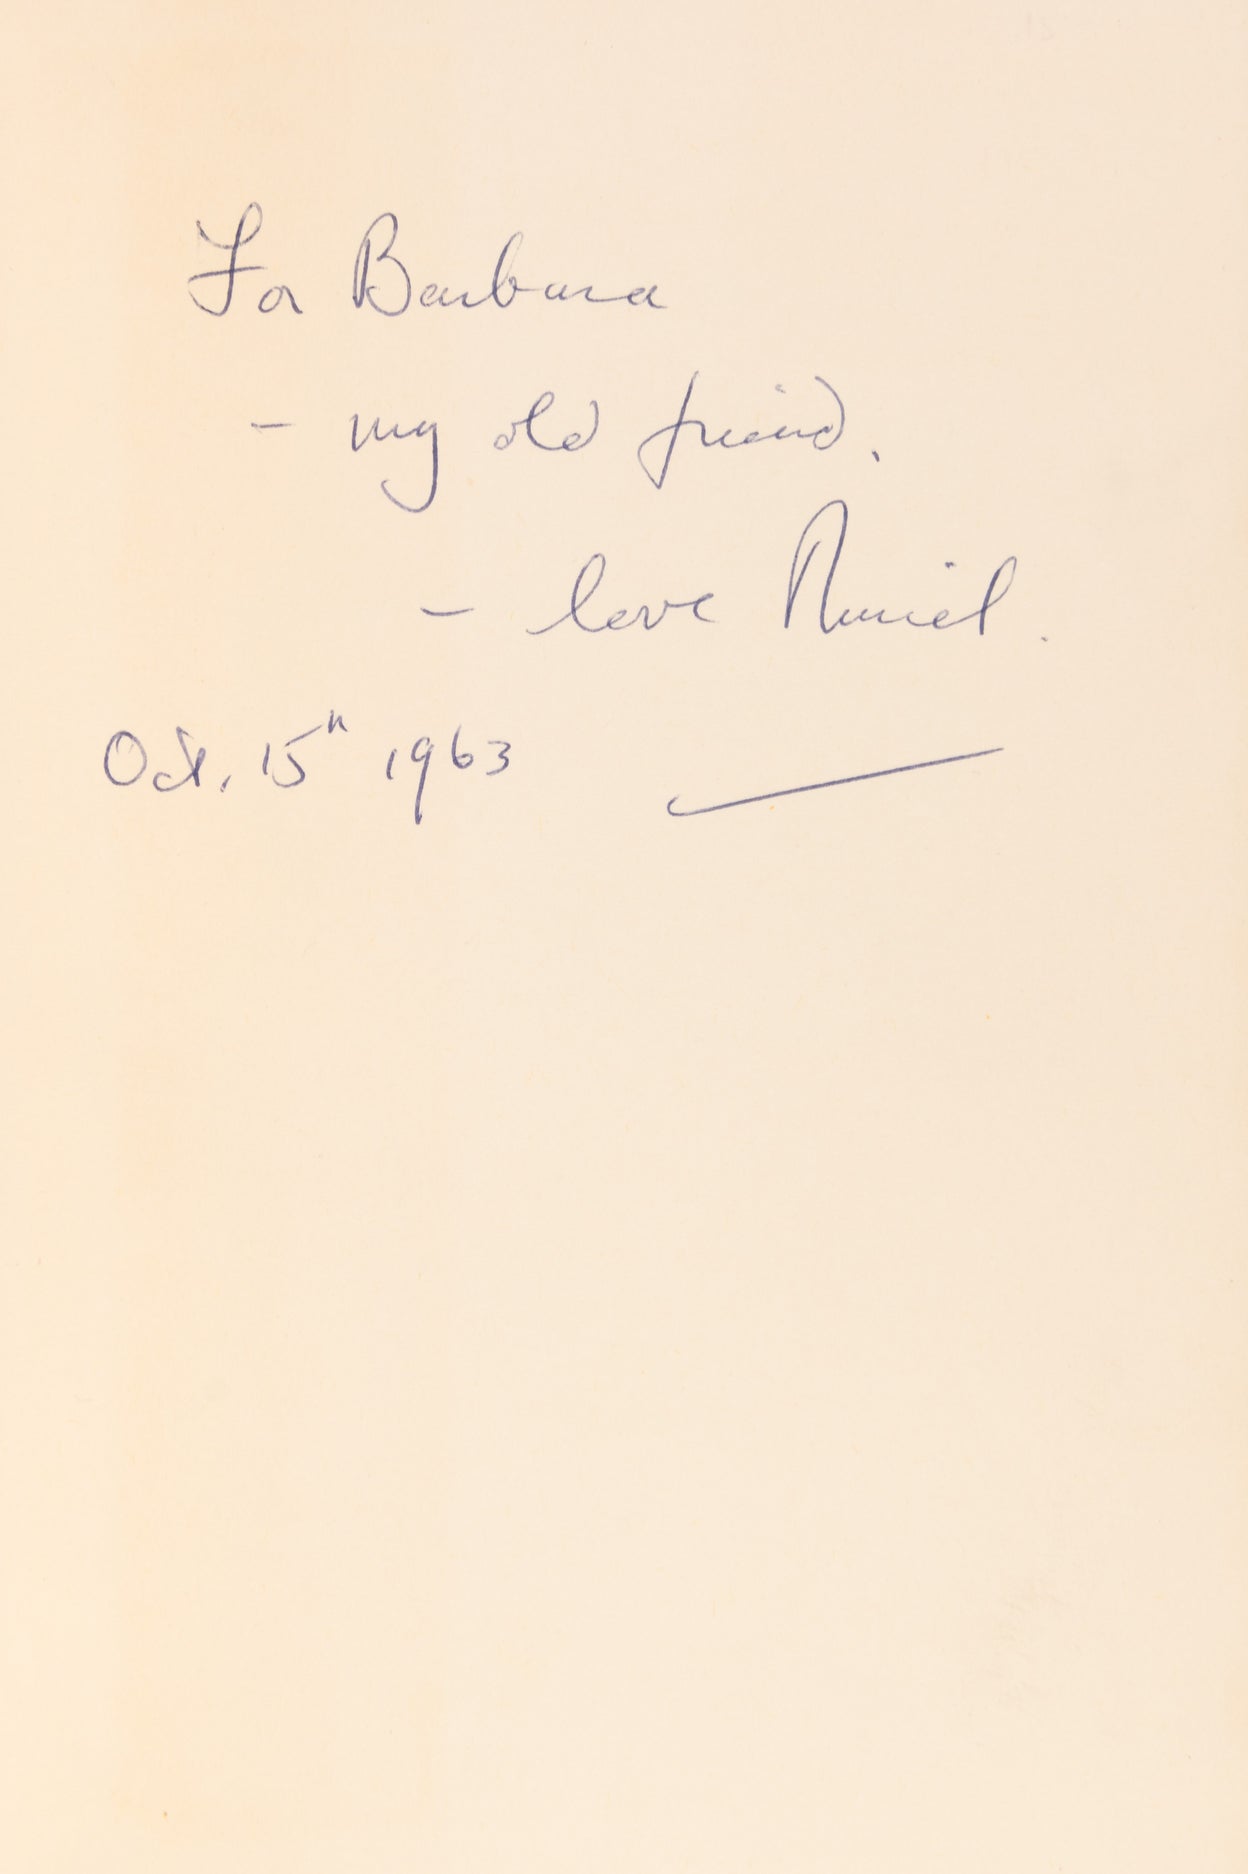 For Barbara
- my old friend.
- love Muriel.
Oct. 15th 1963